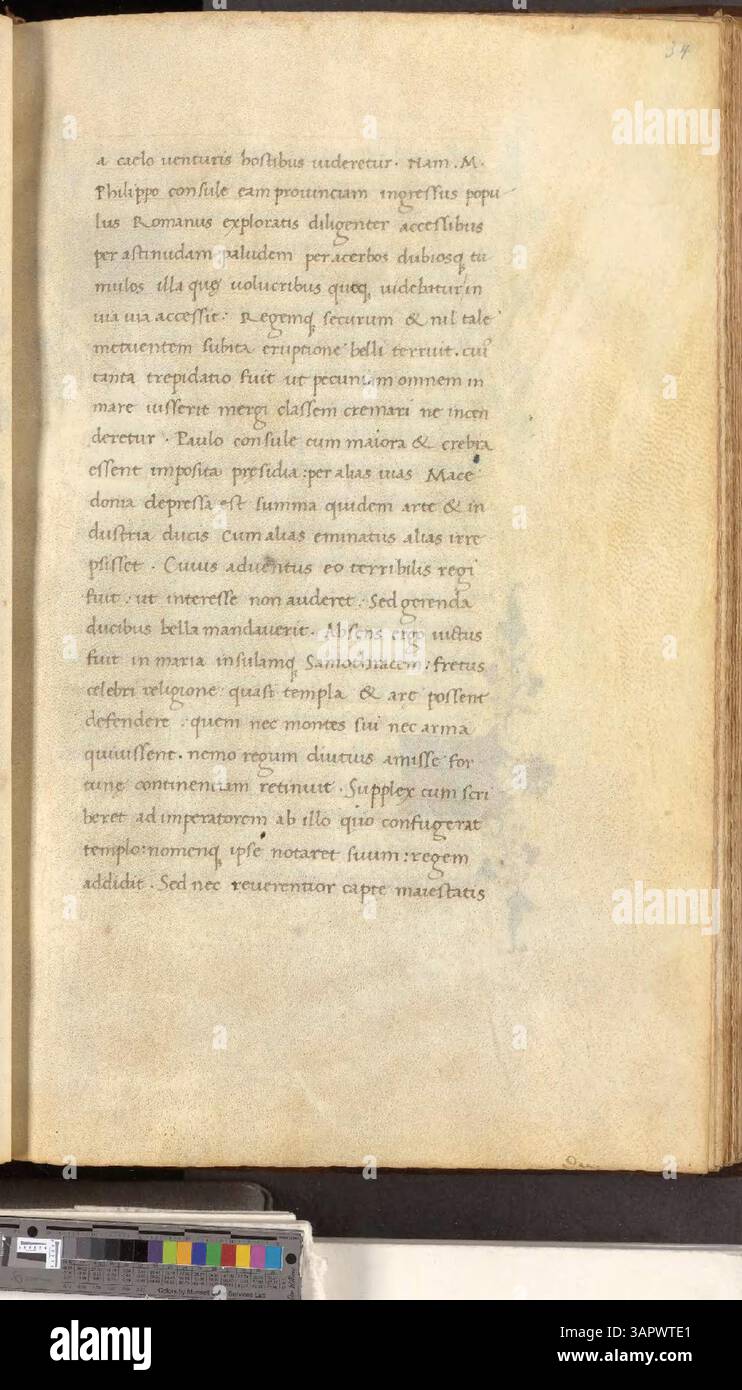 34
a caelo uenturis hostibus uideretur. Nam. M.
Philippo consule eam prouinciam ingressus popu
lus Romanus exploratis diligenter accessibus
per astinudam paludem per acerbos dubiosq; tu
mulos illa quę uolucribus quoq; uidebatur in
uia uia accessit: Regemq; securum & nil tale
metuentem subita eruptione belli terruit. cui
tanta trepidatio fuit ut pecuniam omnem in
mare iusserit mergi classem cremari ne incen
deretur. Paulo consule cum maiora & crebra
essent imposita presidia: per alias uias Mace
donia depressa est summa quidem arte & in
dustria ducis Cum alias eminatus alias irre
psisset. Cuius aduentus eo terribilis regi
fuit: ut interesse non auderet. Sed gerenda
ducibus bella mandauerit. Absens ergo uictus
fuit in maria insulamq; Samothracen: fretus
celebri religione quasi templa & arę possent
defendere: quem nec montes sui nec arma
quiuissent. nemo regum diutius amisse for
tunę continenciam retinuit. Supplex cum scri
beret ad imperatorem ab illo quo confugerat
templo: nomenq; ipse notaret suum: regem
addidit. Sed nec reuerentior capte maiestatis
alamy
alamy
alamy
alamy
Image ID: 3APWTE1
www.alamy.com